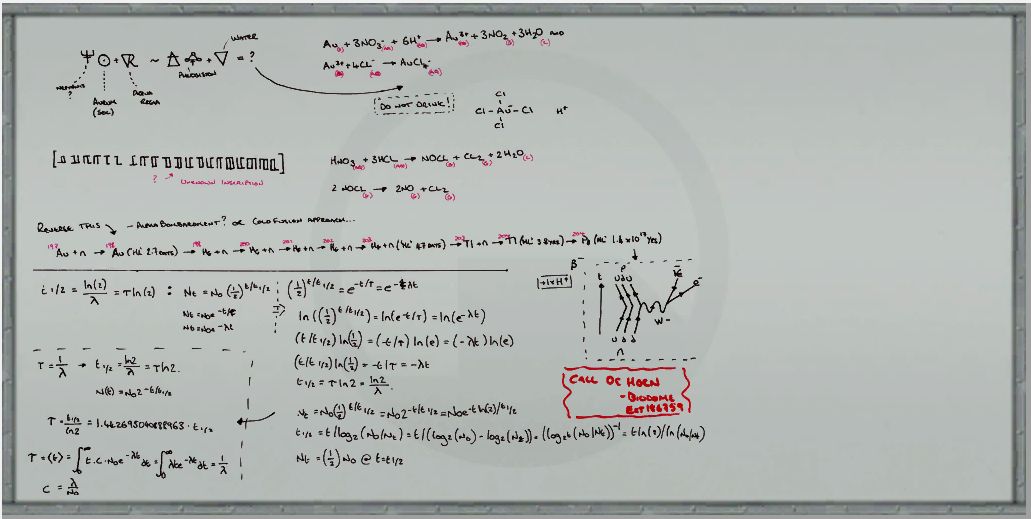 WATER
= ?
PRECISION
AURUM
(SOL)
AQUA
REGIA
Au(s) + 3NO₃⁻(aq) + 6H⁺(aq) → Au³⁺(aq) + 3NO₂(g) + 3H₂O(l) AND
Au³⁺(aq) + 4Cl⁻(aq) → AuCl₄⁻(aq)
DO NOT DRINK!
Cl
Cl - Au⁻ - Cl H⁺
Cl
? → UNKNOWN INSCRIPTION
HNO₃(aq) + 3HCl(aq) → NOCl(g) + Cl₂(g) + 2H₂O(l)
2 NOCl(g) → 2NO(g) + Cl₂(g)
REVERSE THIS - ALPHA BOMBARDMENT? OR COLD FUSION APPROACH...
¹⁹⁷Au + n → ¹⁹⁸Au (HL: 2.7 DAYS) → ¹⁹⁸Hg + n → ²⁰⁰Hg + n → ²⁰¹Hg + n → ²⁰²Hg + n → ²⁰³Hg + n (HL: 47 DAYS) → ²⁰³Tl + n → ²⁰⁴Tl (HL: 3.8 YRS) → ²⁰⁴Pb (HL: 1.4 x 10¹⁷ YRS)
t 1/2 = ln(2)/λ = τ ln(2) : Nt = N₀ (1/2)^t/t1/2
Nt = N₀e^-t/τ
Nt = N₀e^-λt
(1/2)^t/t1/2 = e^-t/τ = e^-λt
ln((1/2)^t/t1/2) = ln(e^-t/τ) = ln(e^-λt)
(t/t1/2) ln(1/2) = (-t/τ) ln(e) = (-λt) ln(e)
(t/t1/2) ln(1/2) = -t/τ = -λt
t1/2 = τ ln2 = ln2/λ.
τ = 1/λ → t1/2 = ln2/λ = τ ln2.
N(t) = N₀2^-t/t1/2
τ = t1/2/ln2 = 1.442695040888963 · t1/2
τ = ⟨t⟩ = ∫₀^∞ t.c.N₀e^-λt dt = ∫₀^∞ λte^-λt dt = 1/λ
c = λ/N₀
Nt = N₀(1/2)^t/t1/2 = N₀2^-t/t1/2 = N₀e^-t ln(2)/t1/2
t1/2 = t/log₂(N₀/Nt) = t/(log₂(N₀) - log₂(Nt)) = (log₂t(N₀/Nt))⁻¹ = t ln(2)/ln(N₀/Nt)
Nt = (1/2) N₀ @ t=t1/2
β⁻
t
P
U d U
V̄e
e⁻
W-
U d d
n
CALL DE HORN
- BIODOME
EXT 186759